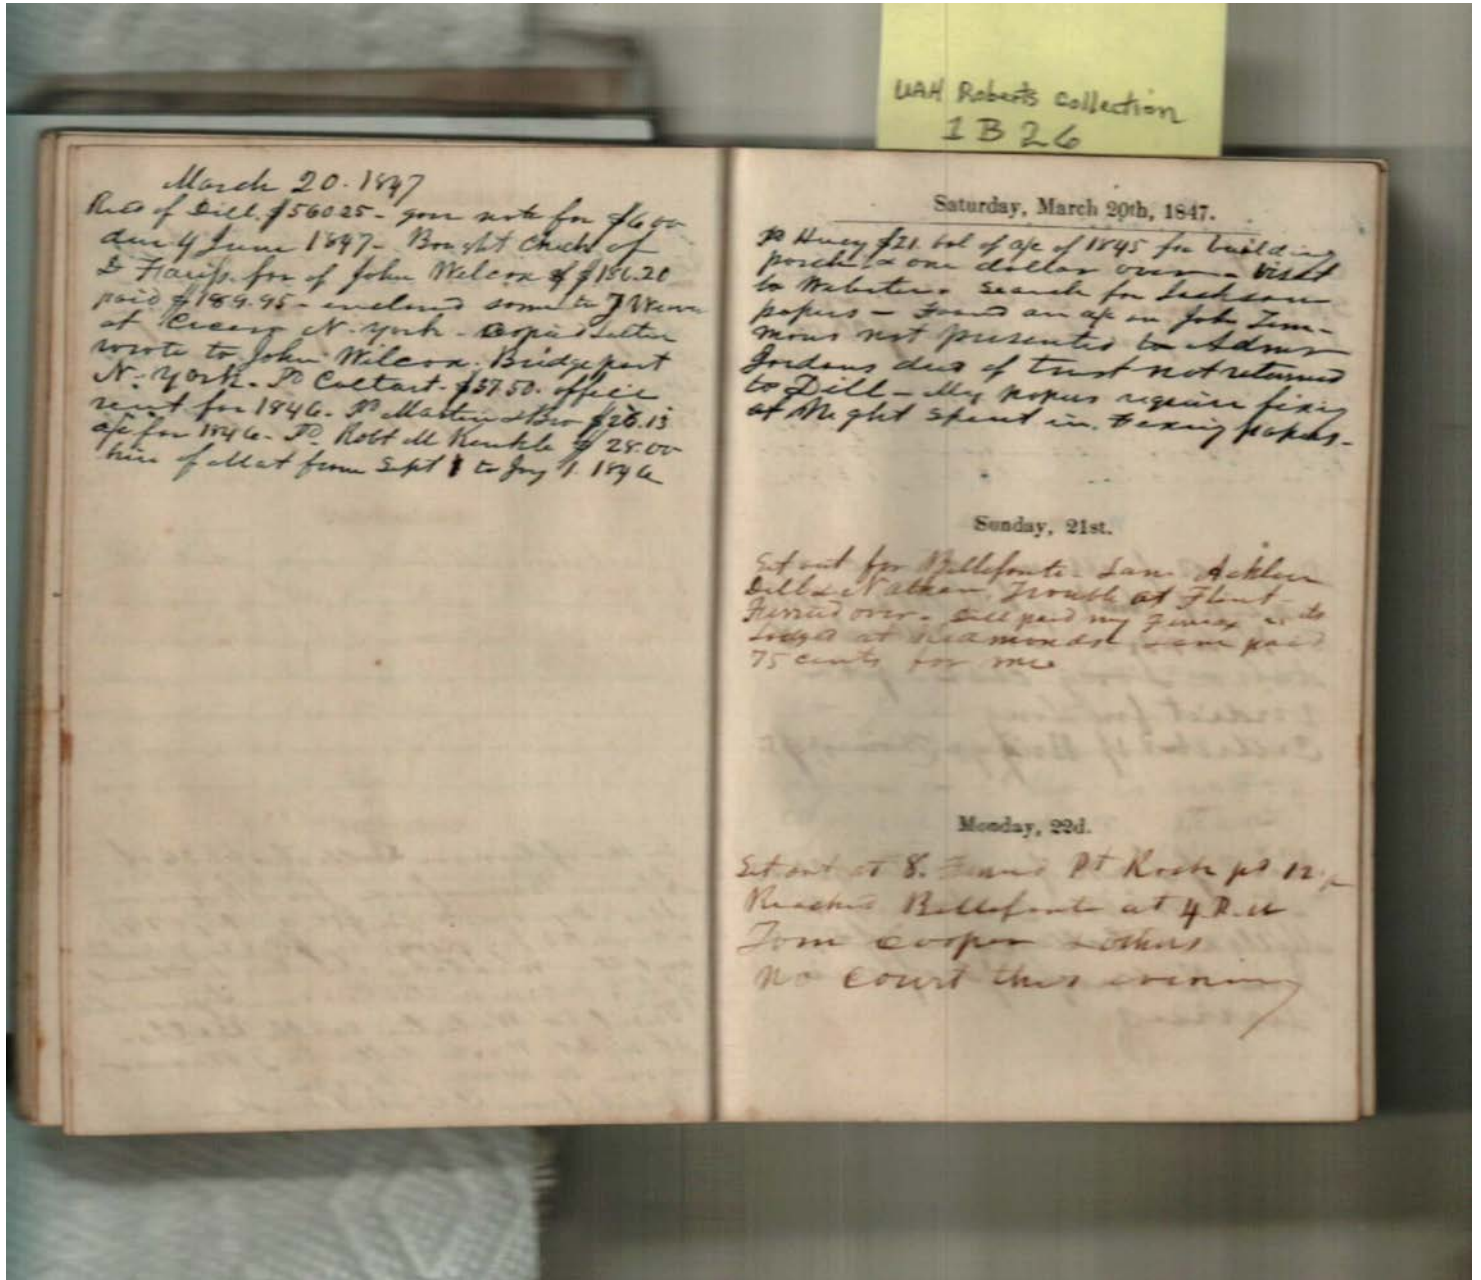 UAH Roberts Collection
1 B 26
March 20. 1847
Recd of Dill. $560 25 - gave note for $600
due 4 June 1847 - Bought Check of
D Fariss. for of John Wilcox of $186.20
paid $189.95 - enclosed same to J
at Cicero N. York - Copied letter
wrote to John Wilcox. Bridgeport
N. York. Pd Coltart. $37.50. office
rent for 1846. Pd Martin & Bro $26.13
a/c for 1846. Pd. Robt M $28.00
hire of Mat from Sept 1 to Jny 1. 1846
Saturday, March 20th, 1847.
pd Huey $21. bal of a/c of 1845 for building
porch & one dollar over - visit
to Webster. Search for Jackson
papers - Found an a/c on John Tim-
mons not presented to Admr
Jordans deed of trust not returned
to Dill - My papers require fixing
at Night spent in fixing papers -
Sunday, 21st.
Set out for Bellefonte. Sam. Acklen
Dill & Nathan. Trouble at Flint -
Ferried over - Dill paid my
Lodged at paid
75 cents for me
Monday, 22d.
Set out at 8. Pt Rock pd 12
Reached Bellefonte at 4 P. M
Tom Cooper & others
No Court this evening